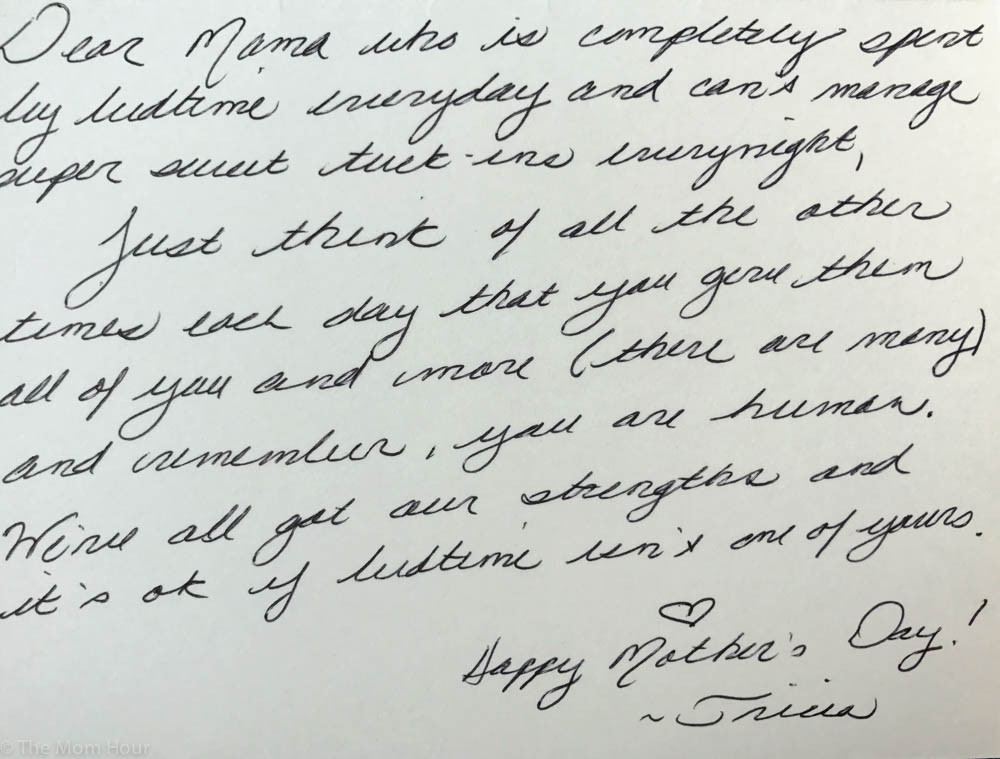 Dear Mama who is completely spent
by bedtime everyday and can't manage
super sweet tuck-ins everynight,
Just think of all the other
times each day that you give them
all of you and more (there are many)
and remember, you are human.
We've all got our strengths and
it's ok if bedtime isn't one of yours.
♡
Happy Mother's Day!
~ Tricia
© The Mom Hour